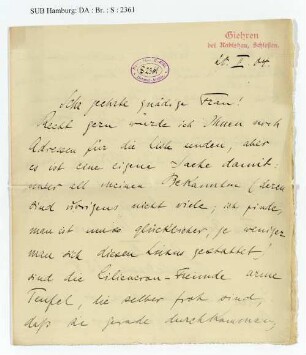 SUB Hamburg: DA : Br. : S : 2361
Giehren
bei Rabishau, Schlesien.
20. II 04.
Sehr geehrte gnädige Frau!
Recht gern würde ich Ihnen noch
Adressen für die Liste senden, aber
es ist eine eigene Sache damit.
unter all meinen Bekannten (deren
sind übrigens nicht viele; ich finde,
man ist umso glücklicher, je weniger
man sich diesen Luxus gestattet)
sind die Liliencron-Freunde arme
Teufel, die selber froh sind,
daß sie gerade durchkommen,